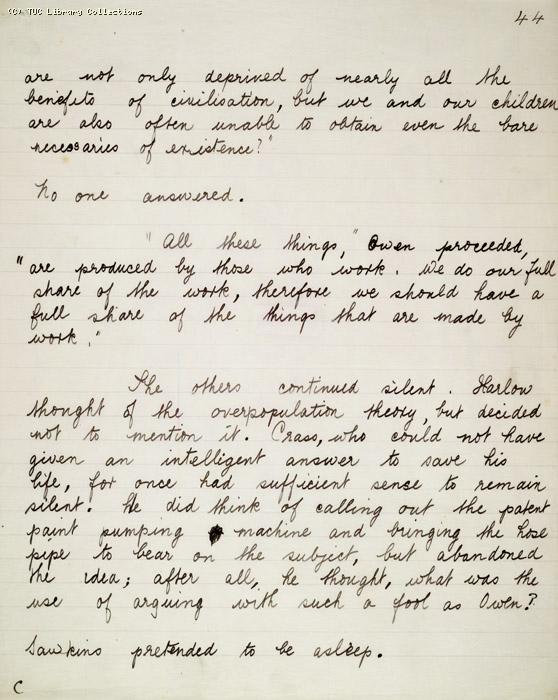 (C) TUC Library Collections
44
are not only deprived of nearly all the
benefits of civilisation, but we and our children
are also often unable to obtain even the bare
necessaries of existence?"
No one answered.
"All these things," Owen proceeded,
"are produced by those who work. We do our full
share of the work, therefore we should have a
full share of the things that are made by
work."
The others continued silent. Harlow
thought of the overpopulation theory, but decided
not to mention it. Crass, who could not have
given an intelligent answer to save his
life, for once had sufficient sense to remain
silent. He did think of calling out the patent
paint pumping machine and bringing the hose
pipe to bear on the subject, but abandoned
the idea; after all, he thought, what was the
use of arguing with such a fool as Owen?
Sawkins pretended to be asleep.
C